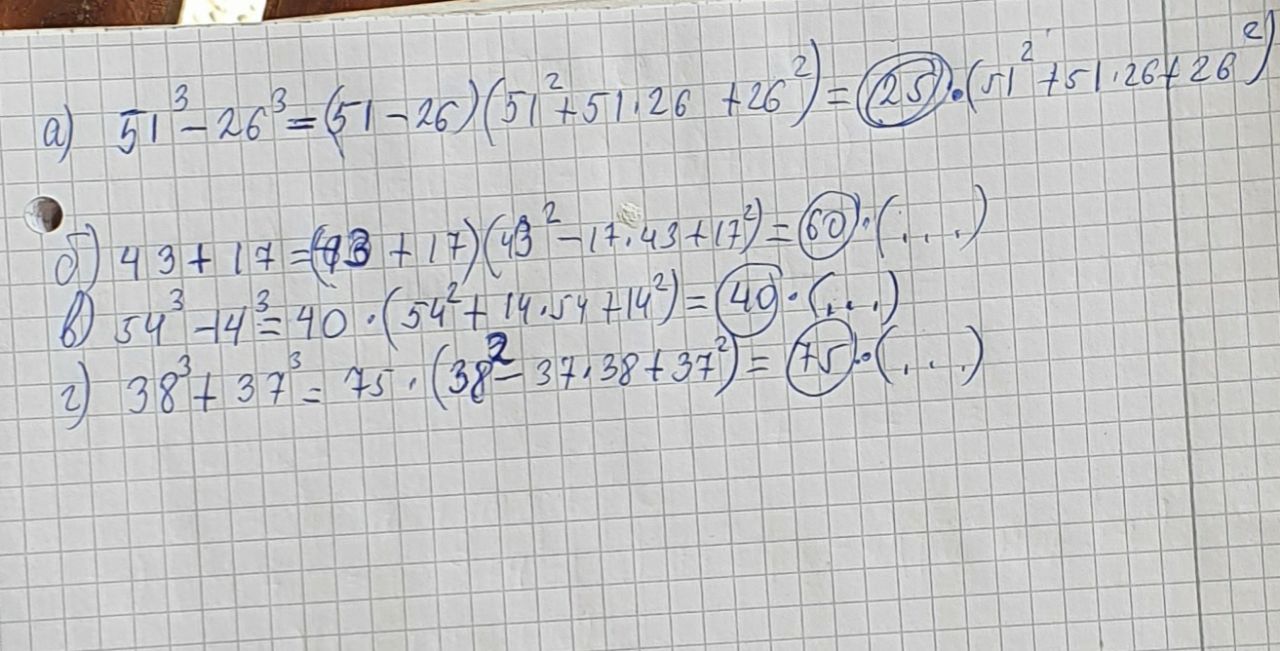 а) 51³ – 26³ = (51 – 26)(51² + 51·26 + 26²) = 25·(51² + 51·26 + 26²)
б) 43 + 17 = (43 + 17)(43² – 17·43 + 17²) = 60·(...)
в) 54³ – 14³ = 40·(54² + 14·54 + 14²) = 40·(...)
г) 38³ + 37³ = 75·(38² – 37·38 + 37²) = 75·(...)